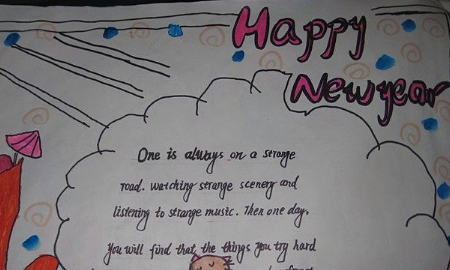 Happy
Newyear
One is always on a strange
road. watching strange scenery and
listening to strange music. Then one day,
you will find that the things you try hard